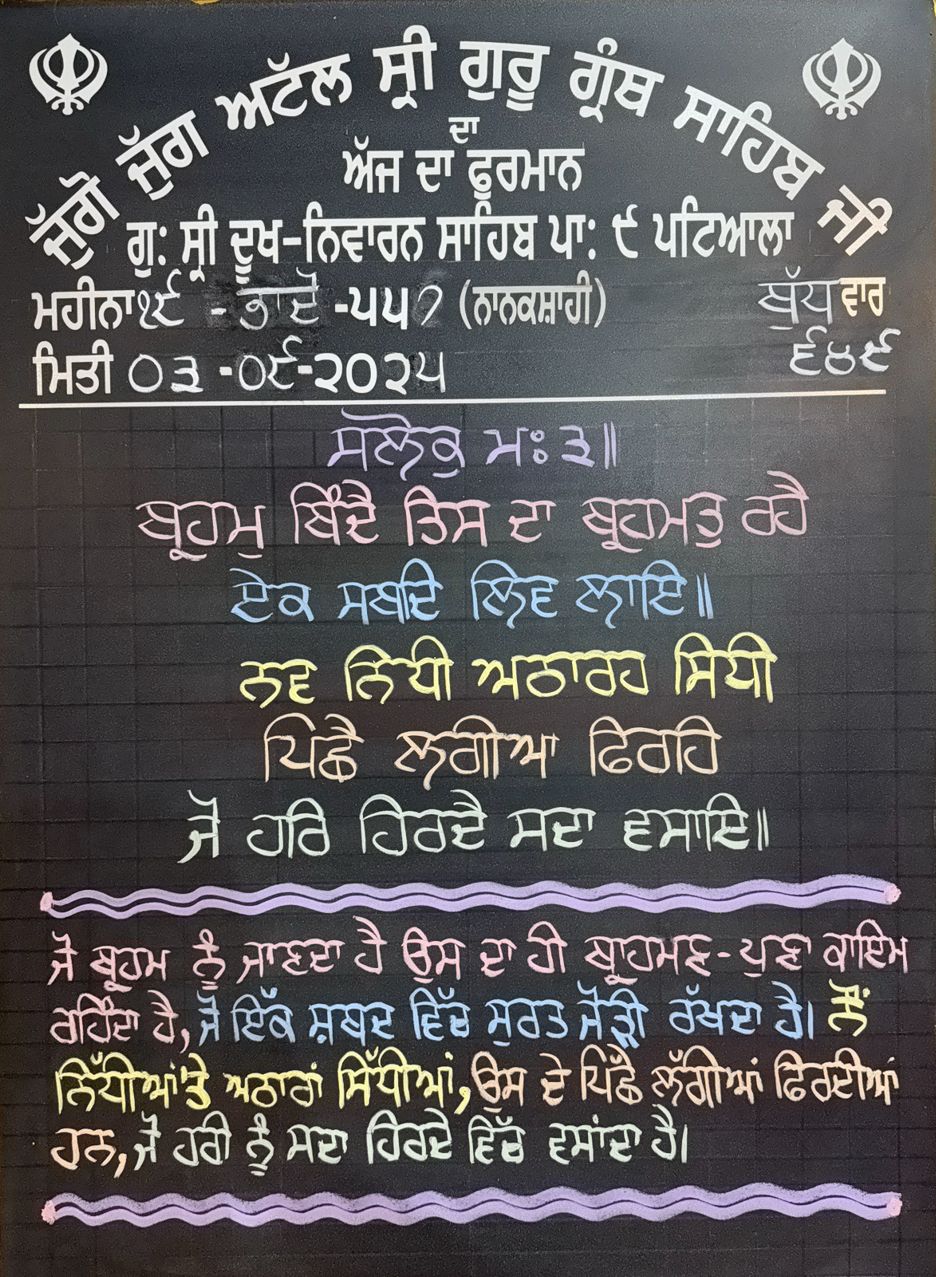 ਜੁੱਗੋ ਜੁੱਗ ਅਟੱਲ ਸ੍ਰੀ ਗੁਰੂ ਗ੍ਰੰਥ ਸਾਹਿਬ ਜੀ
ਦਾ
ਅੱਜ ਦਾ ਫੁਰਮਾਨ
ਗੁ: ਸ੍ਰੀ ਦੂਖ-ਨਿਵਾਰਨ ਸਾਹਿਬ ਪਾ: ੯ ਪਟਿਆਲਾ
ਮਹੀਨਾ ੧੯ - ਭਾਦੋਂ -੫੫੭ (ਨਾਨਕਸ਼ਾਹੀ) ਬੁੱਧ ਵਾਰ
ਮਿਤੀ ੦੩ -੦੯-੨੦੨੫ ੬੪੯
ਸਲੋਕੁ ਮਃ ੩॥
ਬ੍ਰਹਮੁ ਬਿੰਦੈ ਤਿਸ ਦਾ ਬ੍ਰਹਮਤੁ ਰਹੈ
ਏਕ ਸਬਦਿ ਲਿਵ ਲਾਇ॥
ਨਵ ਨਿਧੀ ਅਠਾਰਹ ਸਿਧੀ
ਪਿਛੈ ਲਗੀਆ ਫਿਰਹਿ
ਜੋ ਹਰਿ ਹਿਰਦੈ ਸਦਾ ਵਸਾਇ॥
ਜੋ ਬ੍ਰਹਮ ਨੂੰ ਜਾਣਦਾ ਹੈ ਉਸ ਦਾ ਹੀ ਬ੍ਰਾਹਮਣ-ਪੁਣਾ ਕਾਇਮ
ਰਹਿੰਦਾ ਹੈ, ਜੋ ਇੱਕ ਸ਼ਬਦ ਵਿੱਚ ਸੁਰਤ ਜੋੜੀ ਰੱਖਦਾ ਹੈ। ਨੌਂ
ਨਿੱਧੀਆਂ'ਤੇ ਅਠਾਰਾਂ ਸਿੱਧੀਆਂ, ਉਸ ਦੇ ਪਿੱਛੈ ਲੱਗੀਆਂ ਫਿਰਦੀਆਂ
ਹਨ, ਜੋ ਹਰੀ ਨੂੰ ਸਦਾ ਹਿਰਦੇ ਵਿੱਚ ਵਸਾਂਦਾ ਹੈ।